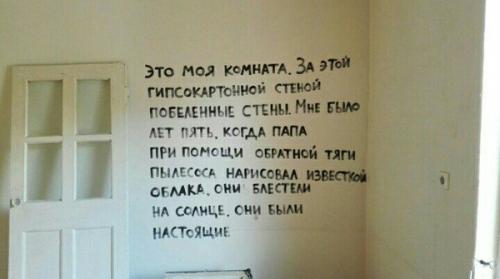 ЭТО МОЯ КОМНАТА. ЗА ЭТОЙ
ГИПСОКАРТОННОЙ СТЕНОЙ
ПОБЕЛЕННЫЕ СТЕНЫ. МНЕ БЫЛО
ЛЕТ ПЯТЬ, КОГДА ПАПА
ПРИ ПОМОЩИ ОБРАТНОЙ ТЯГИ
ПЫЛЕСОСА НАРИСОВАЛ ИЗВЕСТКОЙ
ОБЛАКА. ОНИ БЛЕСТЕЛИ
НА СОЛНЦЕ. ОНИ БЫЛИ
НАСТОЯЩИЕ